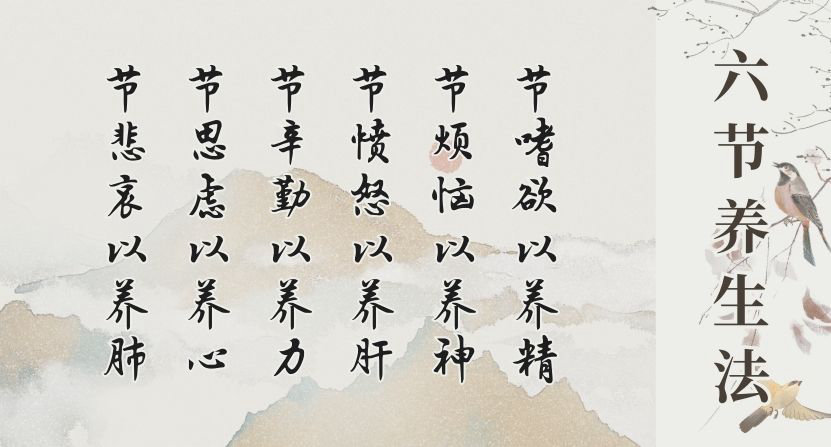 六节养生法
节嗜欲以养精
节烦恼以养神
节愤怒以养肝
节辛勤以养力
节思虑以养心
节悲哀以养肺